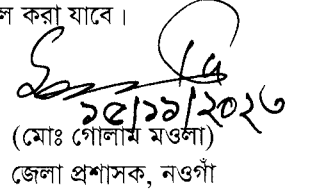 ল করা যাবে।
১৫/১১/২০২৩
(মোঃ গোলাম মওলা)
জেলা প্রশাসক, নওগাঁ